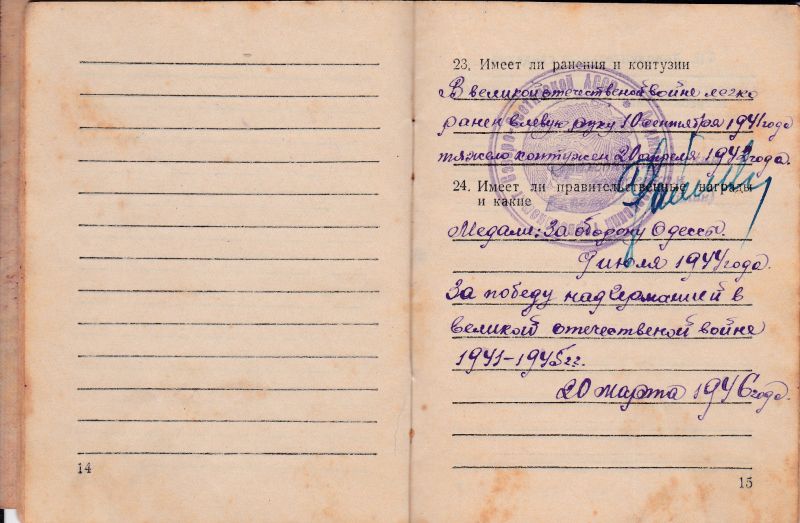 23. Имеет ли ранения и контузии
В великой отечественой войне легко
ранен в левую руку 10 сентября 1941 года
тяжело контужен 20 апреля 1942 года.
24. Имеет ли правительственные награды
и какие
Медали: За оборону Одессы.
9 июля 1944 года.
За победу над Германией в
великой отечественой войне
1941-1945 гг.
20 марта 1946 года.
14
15